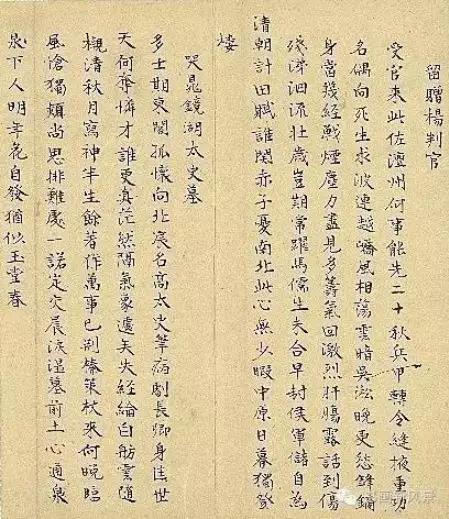 留贈楊判官
受官来此佐澶州何事能先二十秋兵甲轉令縫掖重功
名偶向死生求波連越風相蕩雲暗吳淞晚更愁鋒鏑
身當殘經戰煙塵力盡見多籌氣回激烈肝腸露話到傷
殘涕泗流壯歲豈期常躍馬儒生未合早封侯軍儲自為
清朝計田賦誰闌赤子憂南北此心無少暇中原日暮獨登
樓
哭晁鏡湖太史墓
多士期東閣孤懷向北辰名高太史筆病劇長卿身佳世
天何奪憐才誰更真茫然隔氣象遽矣失經綸白舫雲随
櫬清秋月寫神半生餘著作萬事已荆榛策杖来何晚臨
風愴獨頻尚思排難處一諾定交晨淚湿墓前土心適泉
泉下人明年花自發猶似玉堂春